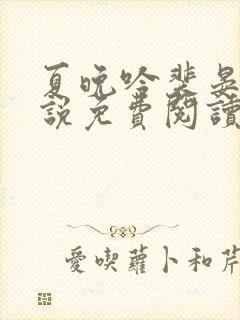 夏晚吟裴晏
說免費閱讀
愛喫蘿卜和芹